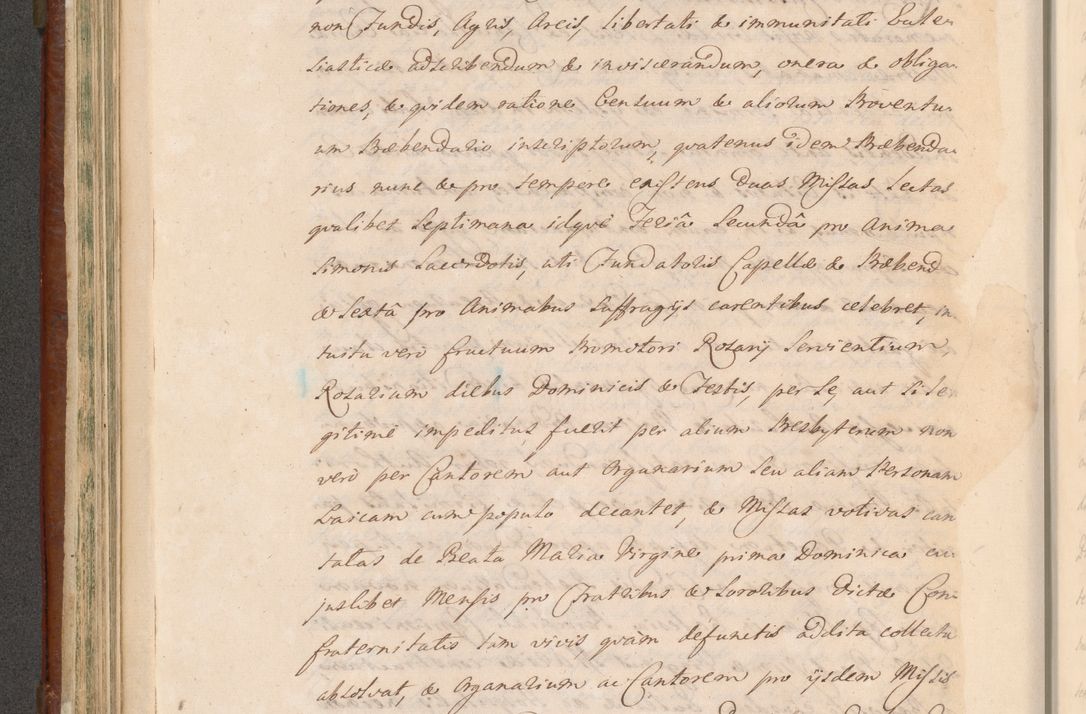 non Fundis, Agris, Areis, libertati & immunitati Eccle-
siasticæ adscribendum & inviscerandum, onera & obliga-
tiones, & qvidem ratione Censuum & aliorum Proventu-
um Præbendario inscriptorum, qvatenus idem Præbenda-
rius nunc & pro tempore existens duas Missas lectas
qvalibet septimana idqve Feriâ Secundâ pro Anima
Simonis Sacerdotis, uti Fundatoris Capellæ & Præbend
& Sextâ pro Animabus suffragijs carentibus celebret, in
tuitu verò fructuum Promotori Rozarij servientium
Rosarium diebus Dominicis & Festis, per se, aut si le
gitimè impeditus fuerit per alium Presbyterum non
verò per Cantorem aut Organarium seu aliam Personam
Laicam cum populo decantet, & Missas votivas can
tatas de Beata Maria Virgine prima Dominica cu
juslibet Mensis pro Fratribus & Sororibus dictæ Con-
fraternitatis tàm vivis, qvàm defunctis addita collecta
absolvat, & Organarium ac Cantorem pro ijsdem Missis